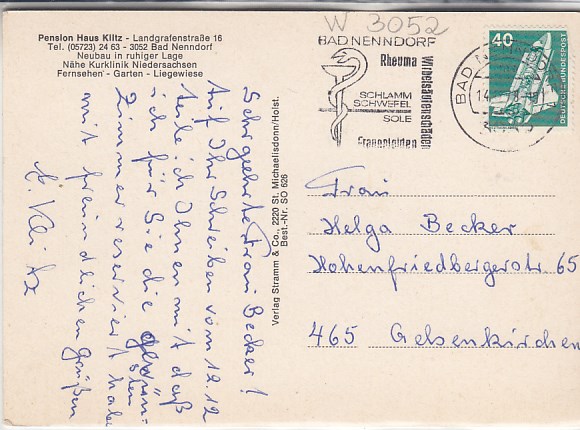 Pension Haus Kiltz - Landgrafenstraße 16
Tel. (05723) 24 63 - 3052 Bad Nenndorf
Neubau in ruhiger Lage
Nähe Kurklinik Niedersachsen
Fernsehen - Garten - Liegewiese
W 3052
BAD NENNDORF
Rheuma
Wirbelsäulenschäden
SCHLAMM
SCHWEFEL
SOLE
Frauenleiden
BAD NENNDORF
40
DEUTSCHE BUNDESPOST
Sehr geehrte Frau Becker!
Auf Ihr Schreiben vom 12.12
teile ich Ihnen mit daß
ich für Sie die gewün-
sten
Zimmer reserviert habe
mit freundlichen Grüßen
Verlag Stramm & Co., 2220 St. Michaelisdonn/Holst.
Best.-Nr. SO 626
Frau
Helga Becker
Hohenfriedbergerstr 65
465 Gelsenkirchen